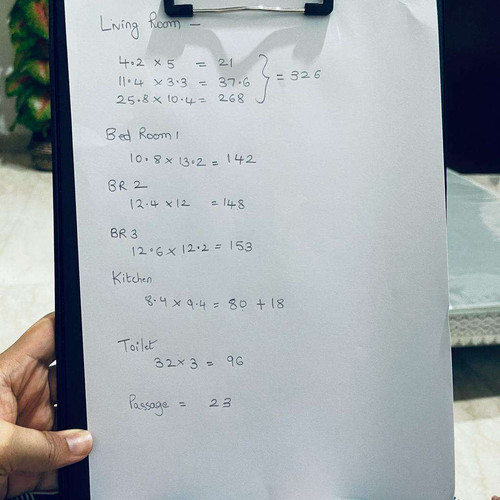 Living Room -
4.2 × 5 = 21
11.4 × 3.3 = 37.6
25.8 × 10.4 = 268
= 326
Bed Room 1
10.8 × 13.2 = 142
BR 2
12.4 × 12 = 148
BR 3
12.6 × 12.2 = 153
Kitchen
8.4 × 9.4 = 80 + 18
Toilet
32 × 3 = 96
Passage = 23